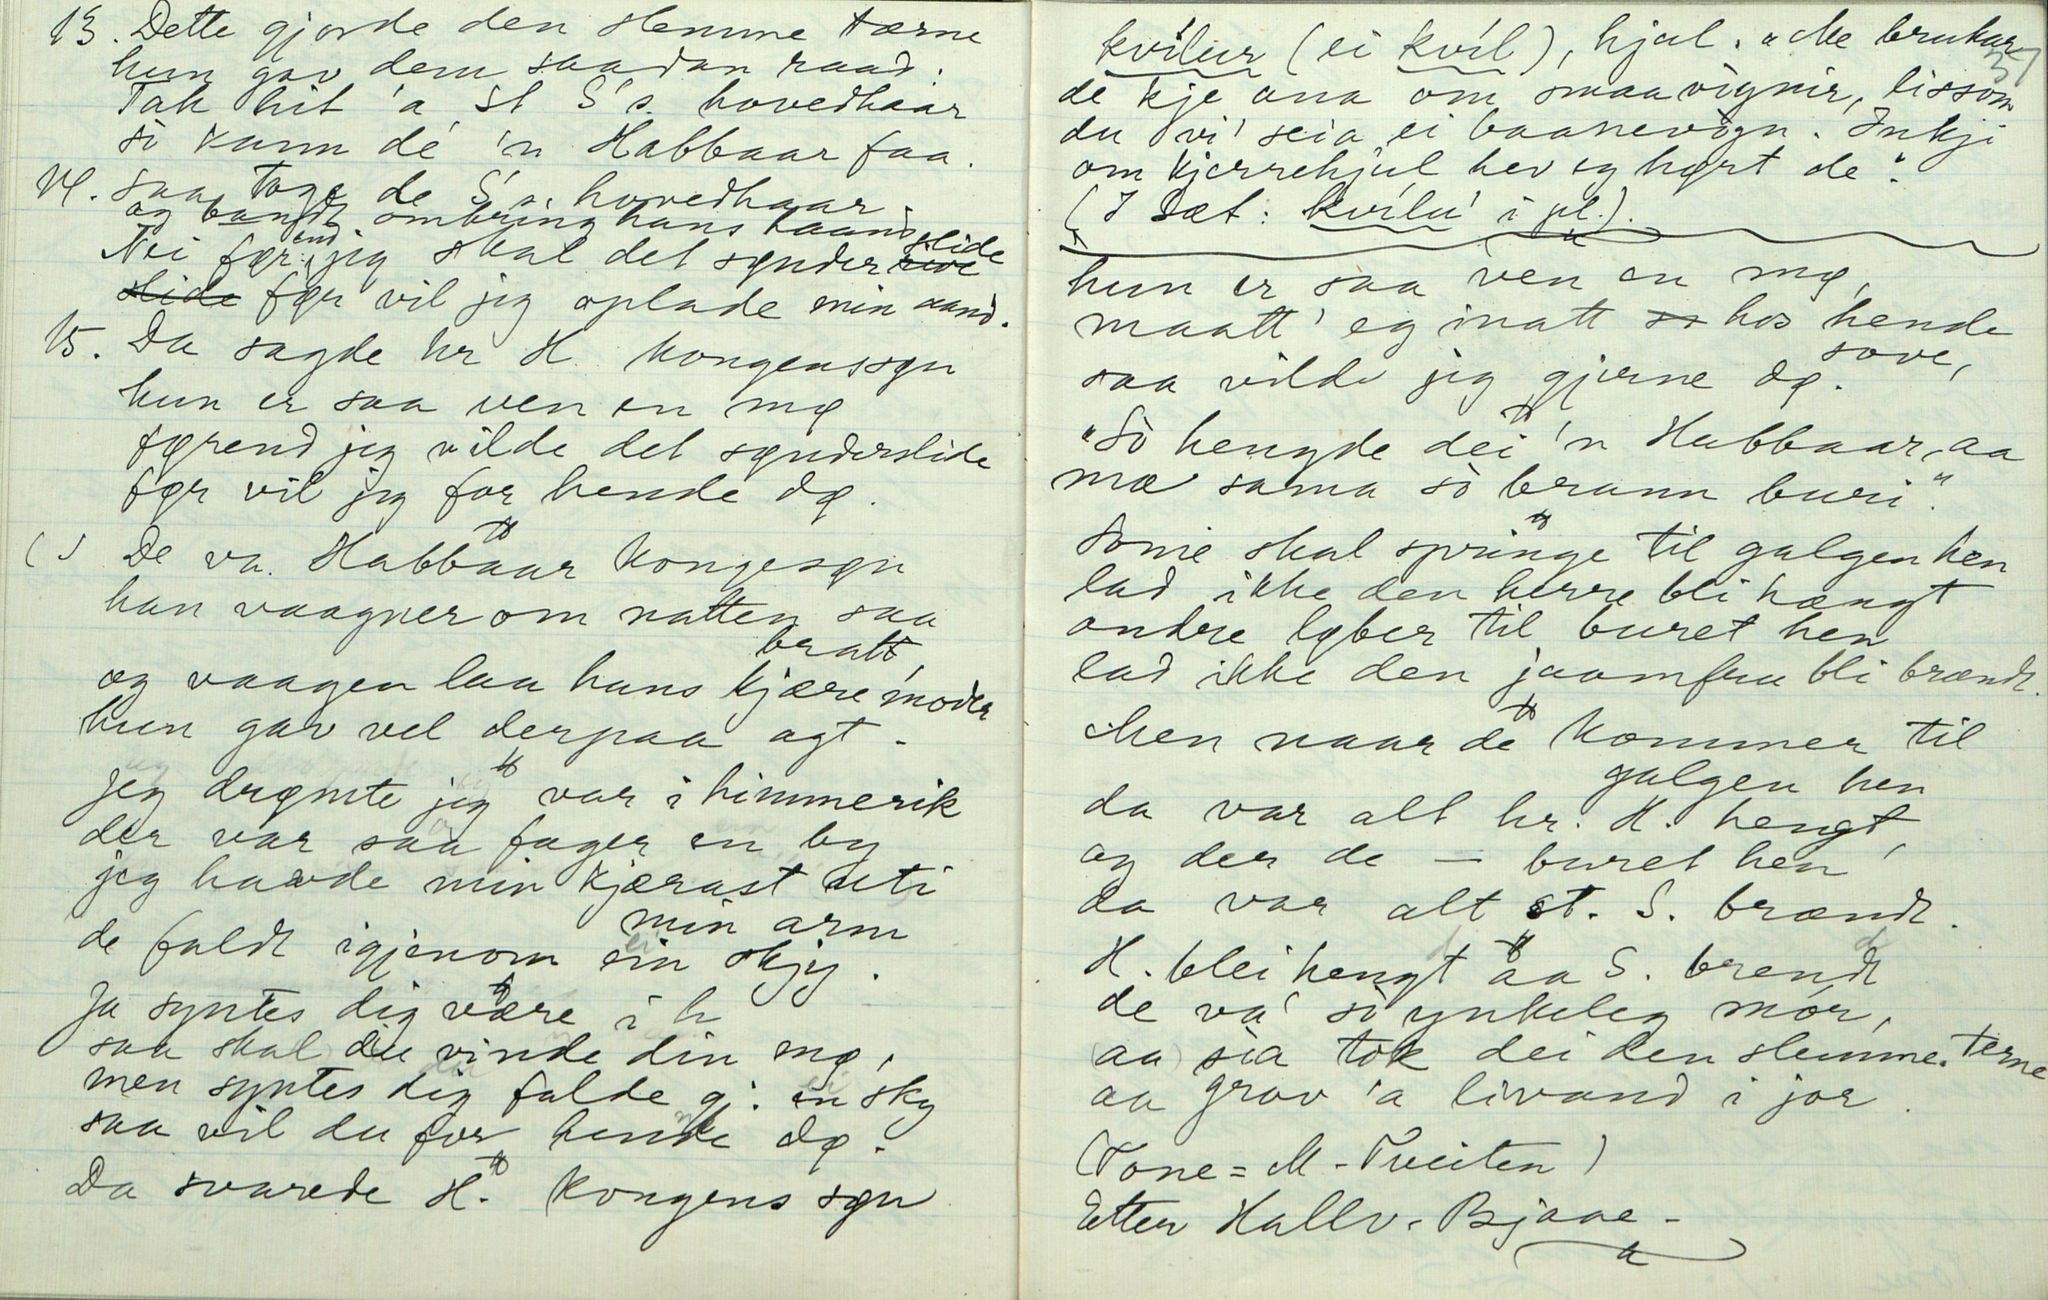 13. Dette gjorde den slemme tærne
hun gav dem saadan raad:
Tak hit 'a St S's hovedhaar
si kann dé 'n Habbaar faa.
14. saa toge de S's hovedhaar
og bandt omkring hans haand
Nei før end jeg skal det sønder rive slide
slide før vil jeg oplade min aand.
15. Da sagde hr H. kongenssøn
hun er saa ven en mø
førend jeg vilde det sønderslide
før vil jeg for hende dø.
( ) De va. Habbaar kongesøn
han vaagner om natten saa
bratt,
og vaagen laa hans kjære moder
hun gav vel derpaa agt.
Jeg drømte jeg var i himmerik
der var saa fager en by
jeg havde min kjærast uti
min arm
de faldt igjenom ein skjy.
Ja syntes dig være i h
saa skal du vinde din mø,
men syntes dig falde gj. en sky
saa vil du for hende dø.
Da svarede H. kongens søn
37
kvílur (ei kvíl), hjul. "Me brukar
de kje ana om smaavignir, lissom
du vi' seia ei baanevign. Inkji
om kjerrehjul hev eg hørt de".
(I Sæt: kvílu' i pl.).
hun er saa ven en mø,
maatt' eg inatt so hos hende
sove,
saa vilde jig gjerne dø.
"Sò hengde dei 'n Habbaar, aa
mæ sama sò brann buri".
Somé skal springe til galgen hen
lad ikke den herre bli hængt
andre løber til buret hen
lad ikke den jaamfru bli brændt.
Men naar de kommer til
galgen hen
da var alt hr. H. hengt,
og der de — buret hen
da var alt st. S. brændt.
H. blei hengt aa S. brendt
de va' sò ynkeleg mor,
(aa) sia tok dei den slemme terne
aa grov 'a livand i jor.
(Tone = M. Tveiten)
Etter Hallv. Bjaae.